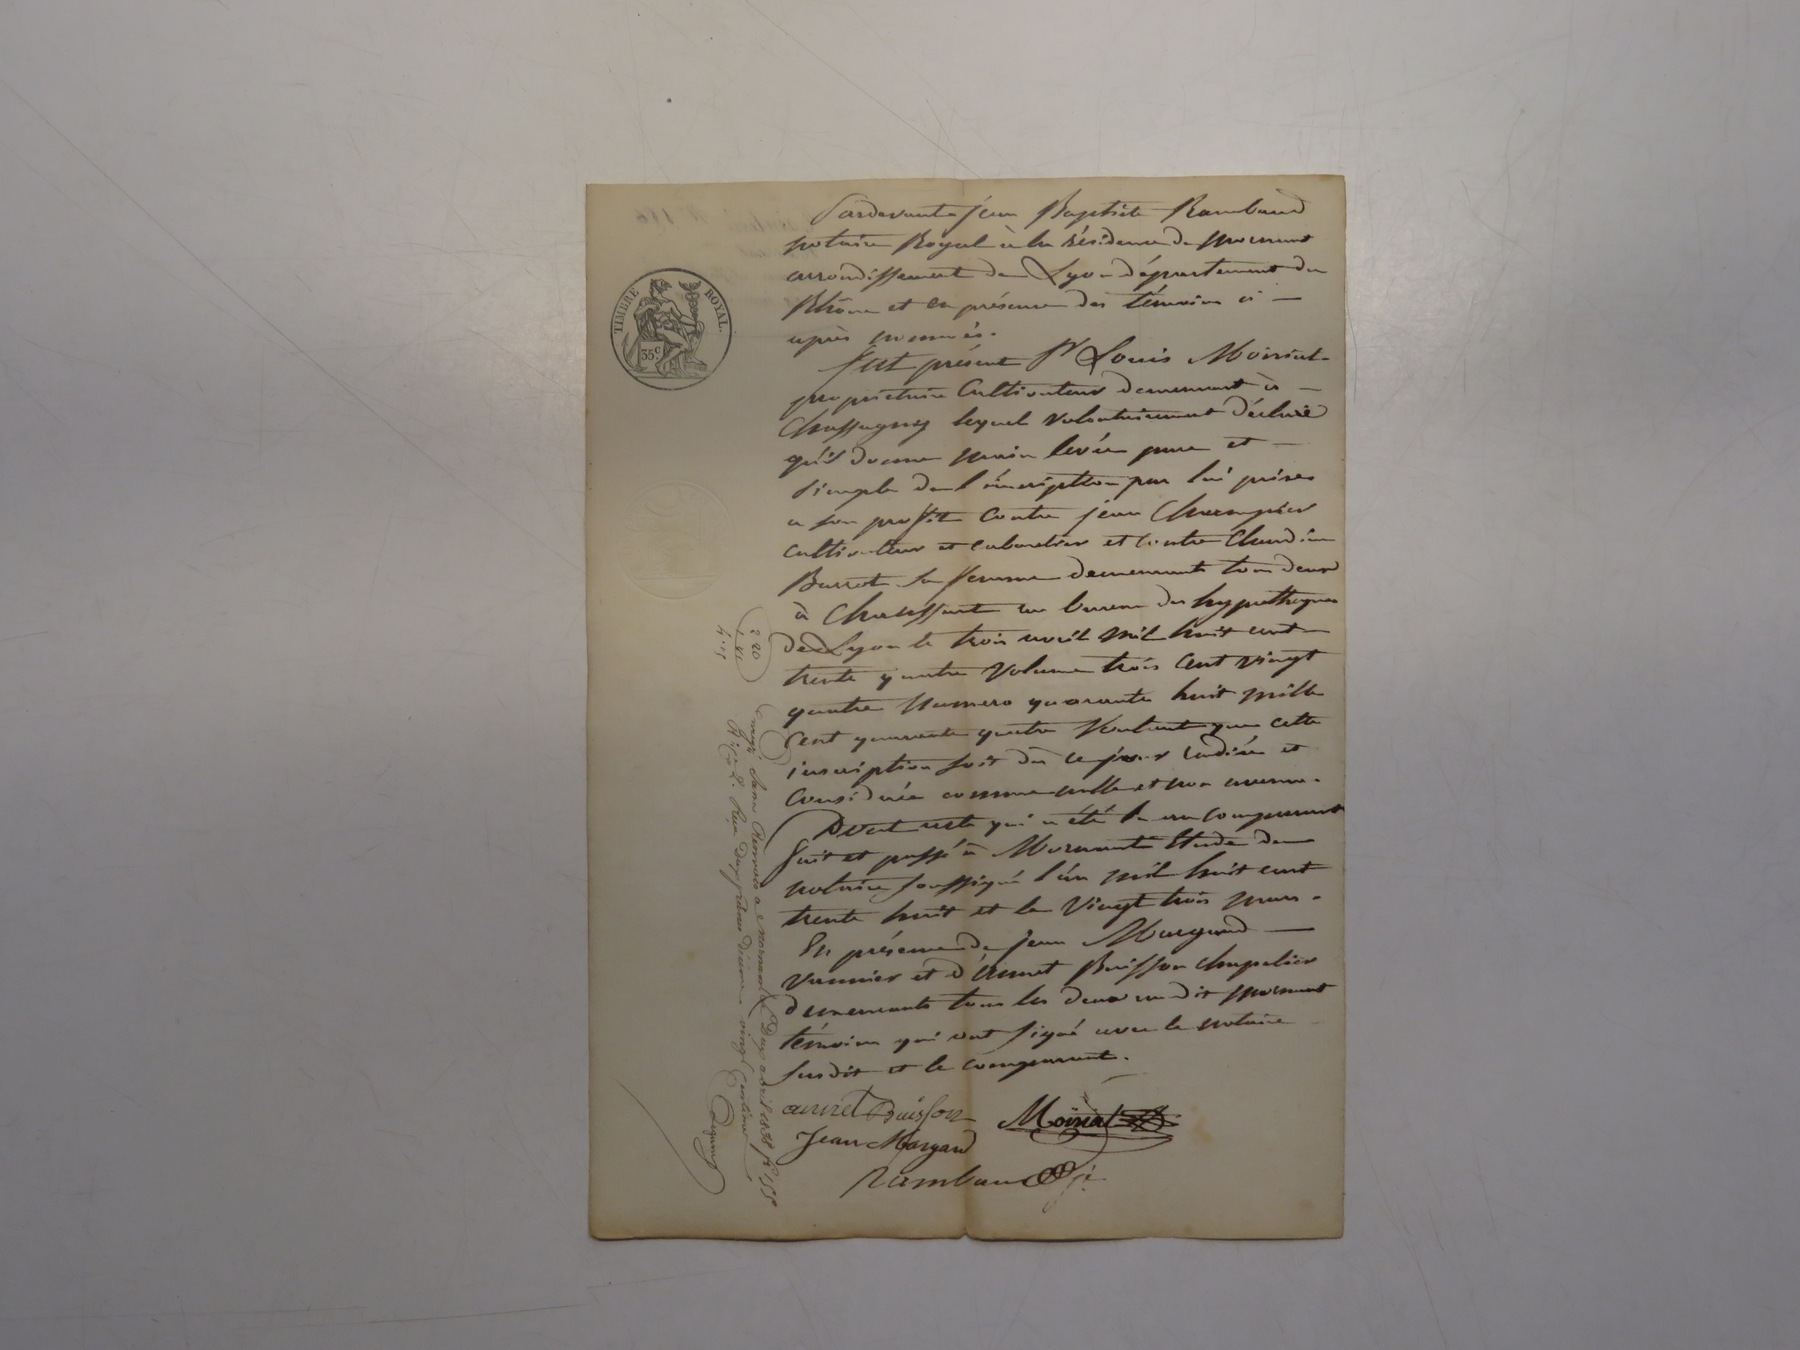 TIMBRE ROYAL.
35c
Pardevant jean Baptiste Rambaud
notaire Royal à la résidence de Mornant
arrondissement de Lyon département du
Rhône et en présence des témoins ci —
après nommés.
fut présent Sr Louis Moiriat
propriétaire Cultivateur demeurant à —
Chassagny lequel volontairement déclare
qu'il donne main levée pure et —
simple de l'inscription par lui prises
a son profit contre jean Charmpier
cultivateur et cabaretier et contre Claudine
Barrot sa femme demeurants tous deux
à Chaussant au bureau des hypothèques
de Lyon le trois avril mil huit cent
trente quatre Volume trois Cent vingt
quatre Numero quarante huit mille
Cent quarante quatre Voulant que cette
inscription soit dès ce jour radiée et
Considerée comme nulle et non avenue.
Dont acte qui a été lu au comparant
fait et passé à Mornant Etude du
notaire soussigné l'an mil huit cent
trente huit et le Vingt trois mars.
En présence de jean Margand —
Vannier et d'Annet Buisson chapelier
demeurants tous les deux au dit Mornant
témoins qui ont signé avec le notaire
susdit et le comparant.
annet Buisson Moiriat
Jean Margand
Rambaud
2 20
4..5
sans Renvois a Mornant le Deux avril 1838 fo 155
Reçu Deux francs Décime vingt centimes